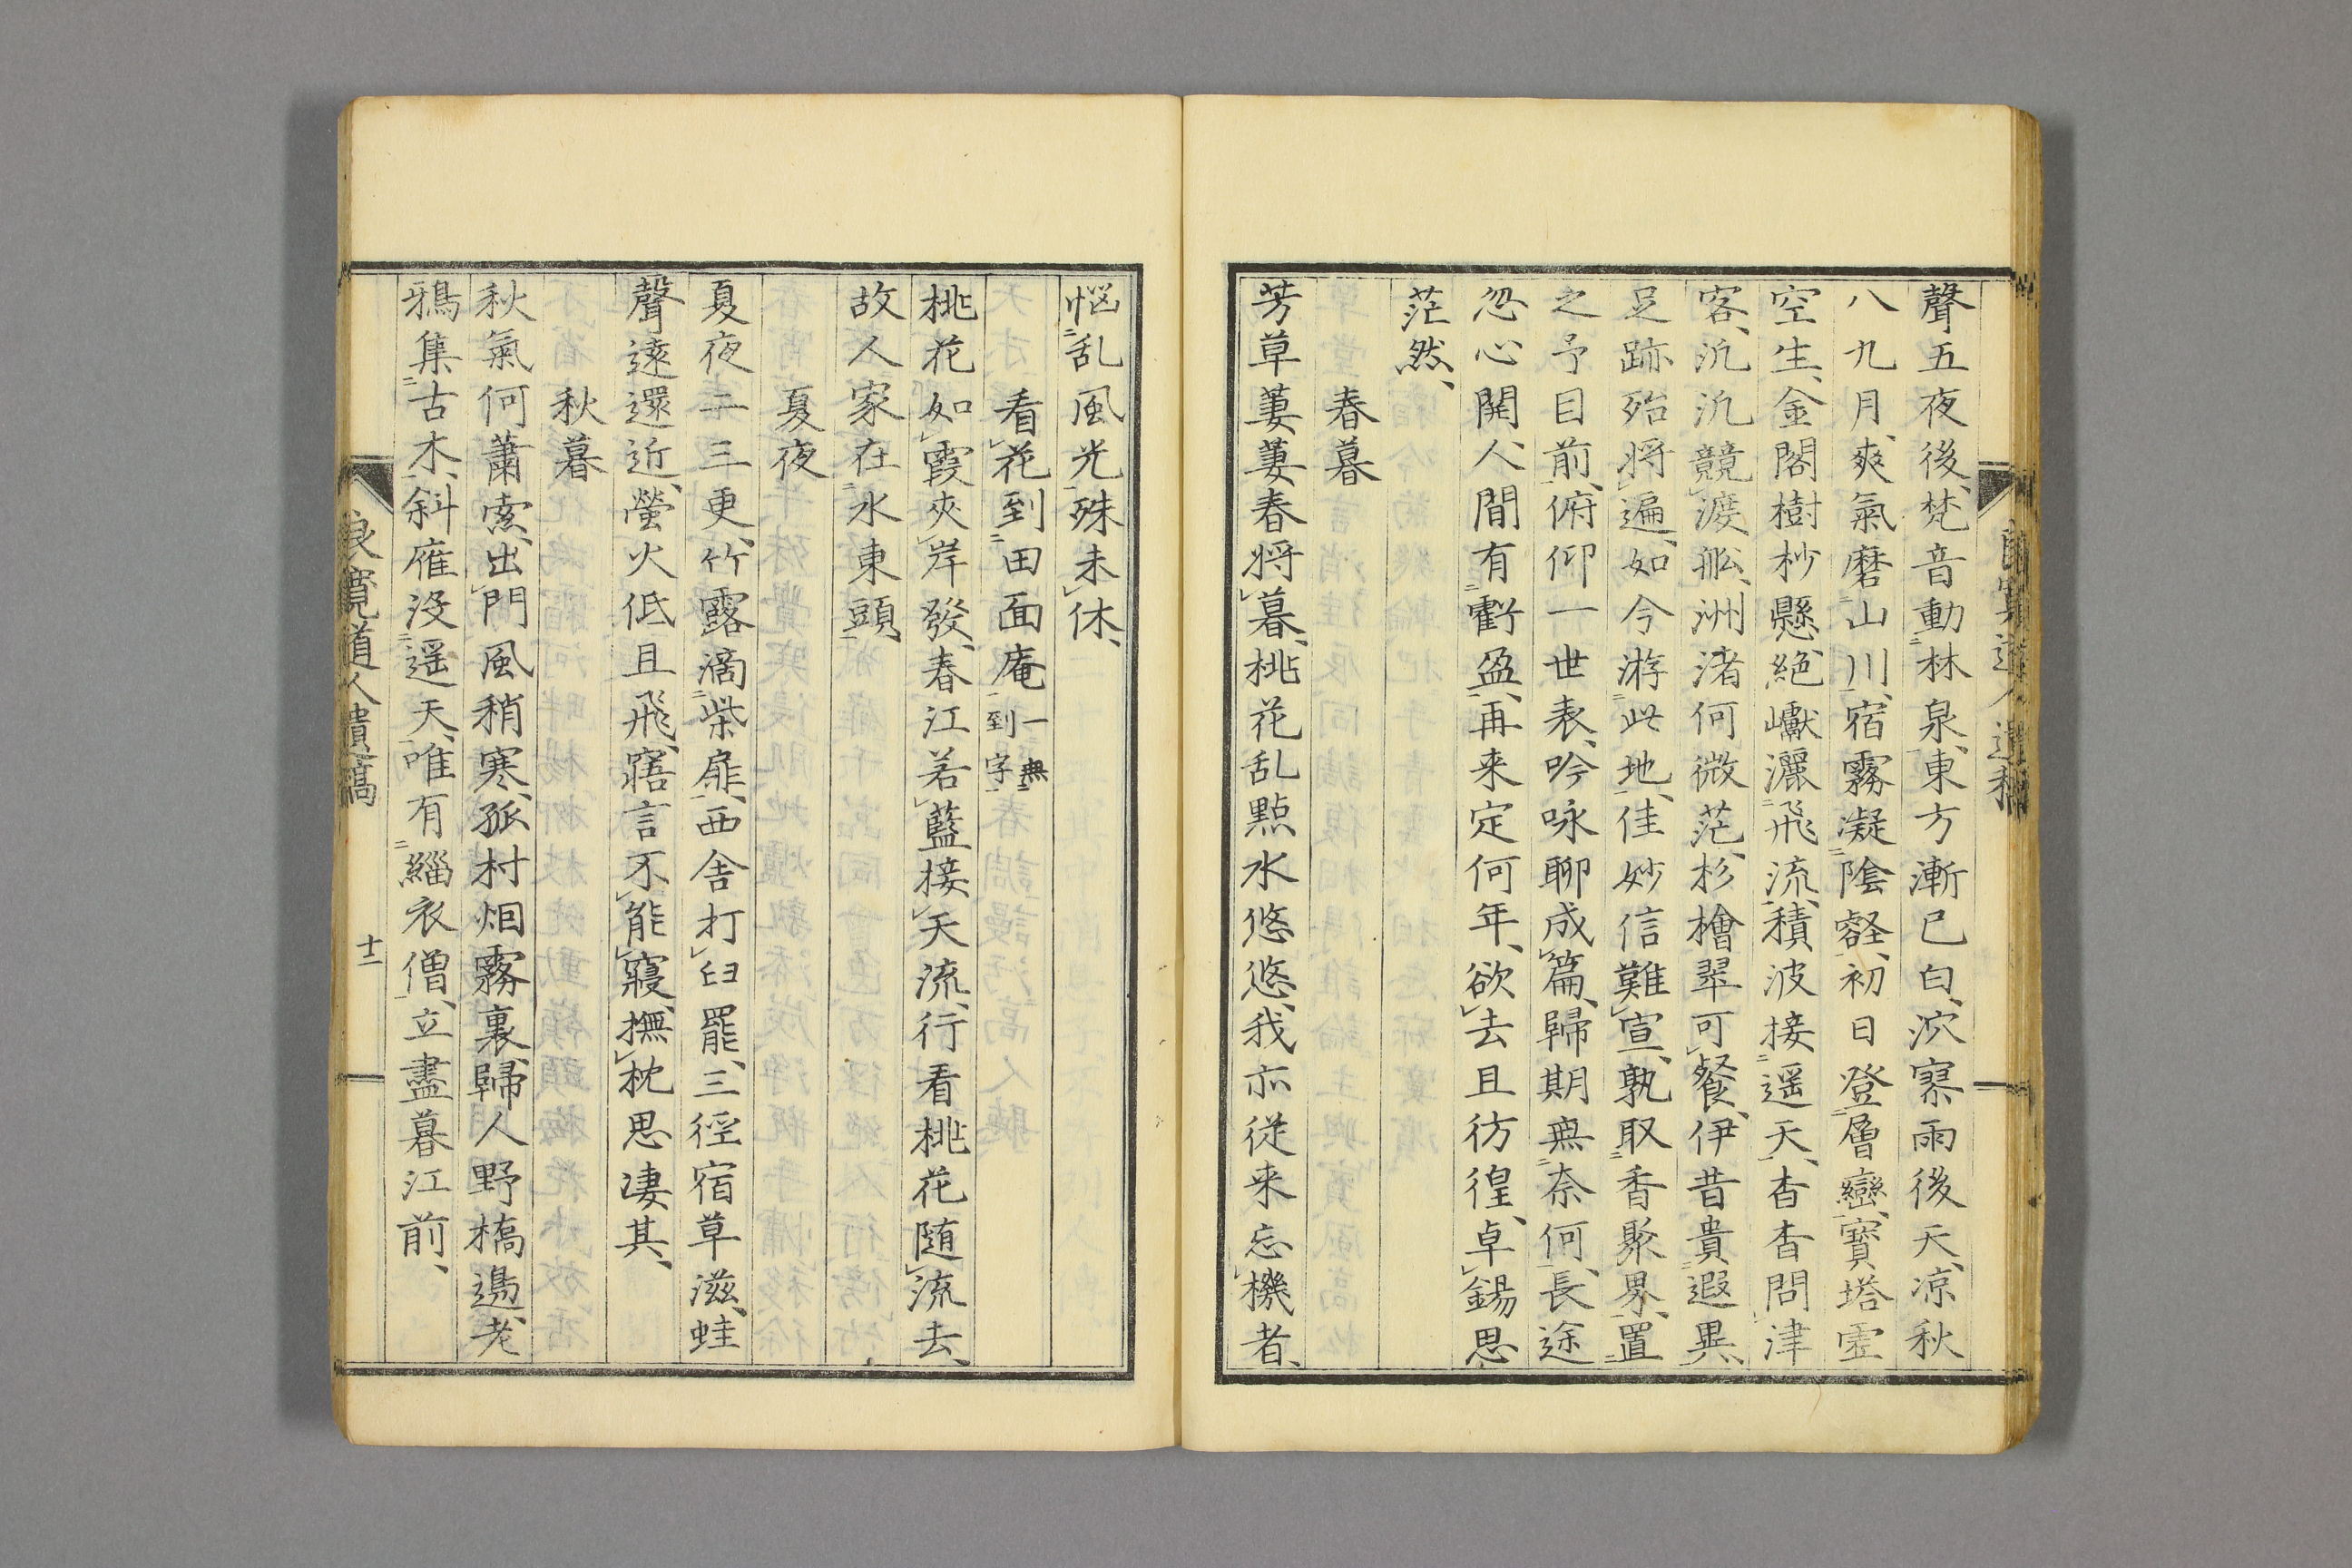 聲五夜後、梵音動林泉、東方漸已白、泬寥雨後天、凉秋
八九月、爽氣磨山川、宿霧凝陰壑、初日登層巒、寶塔虚
空生、金閣樹杪懸、絕巘灑飛流、積波接遥天、杳杳問津
客、汎汎競渡舩、洲渚何微茫、杉檜翠可餐、伊昔貴遐異、
足跡殆将遍、如今游此地、佳妙信難宣、孰取香聚界、置
之予目前、俯仰一世表、吟咏聊成篇、歸期無奈何、長途
忽心関、人間有虧盈、再来定何年、欲去且彷徨、卓錫思
茫然、
春暮
芳草萋萋春将暮、桃花乱點水悠悠、我亦従来忘機者、
悩乱風光殊未休、
看花到田面庵一無到字
桃花如霞夾岸發、春江若藍接天流、行看桃花随流去、
故人家在水東頭、
夏夜
夏夜二三更、竹露滴柴扉、西舎打臼罷、三徑宿草滋、蛙
聲遠還近、螢火低且飛、寤言不能寢、撫枕思凄其、
秋暮
秋氣何蕭索、出門風稍寒、孤村烟霧裏、歸人野橋邉、老
鴉集古木、斜雁没遥天、唯有緇衣僧、立盡暮江前、
良寛道人遺稿
十二